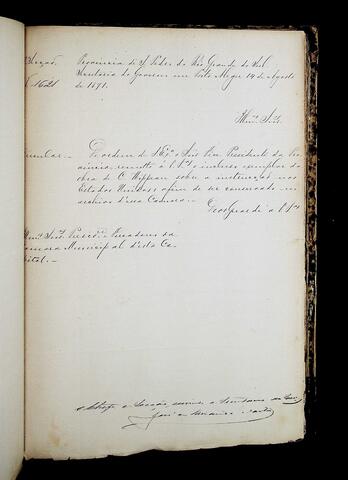 2ª Secção
Provincia de S Pedro do Rio Grande do Sul
N. 1621
Secretaria do Governo em Porto Alegre 14 de Agosto
de 1871.
Illmos. Snrs.
Circular.— De ordem de S Exª o Snr. Presidente da Pro
vincia, remetto á V.Sas o incluso exemplar da
obra de C. Hippeau sobre a instrucção nos
Estados Unidos, afim de ser conservado no
archivo d'essa Camara.—
Deos Guarde a V. Sas
Illmos. Snrs. Presidte. e Vereadores da
Camara Municipal d'esta Ca
pital.—
O Chefe de Secção, servindo de Secretario
José